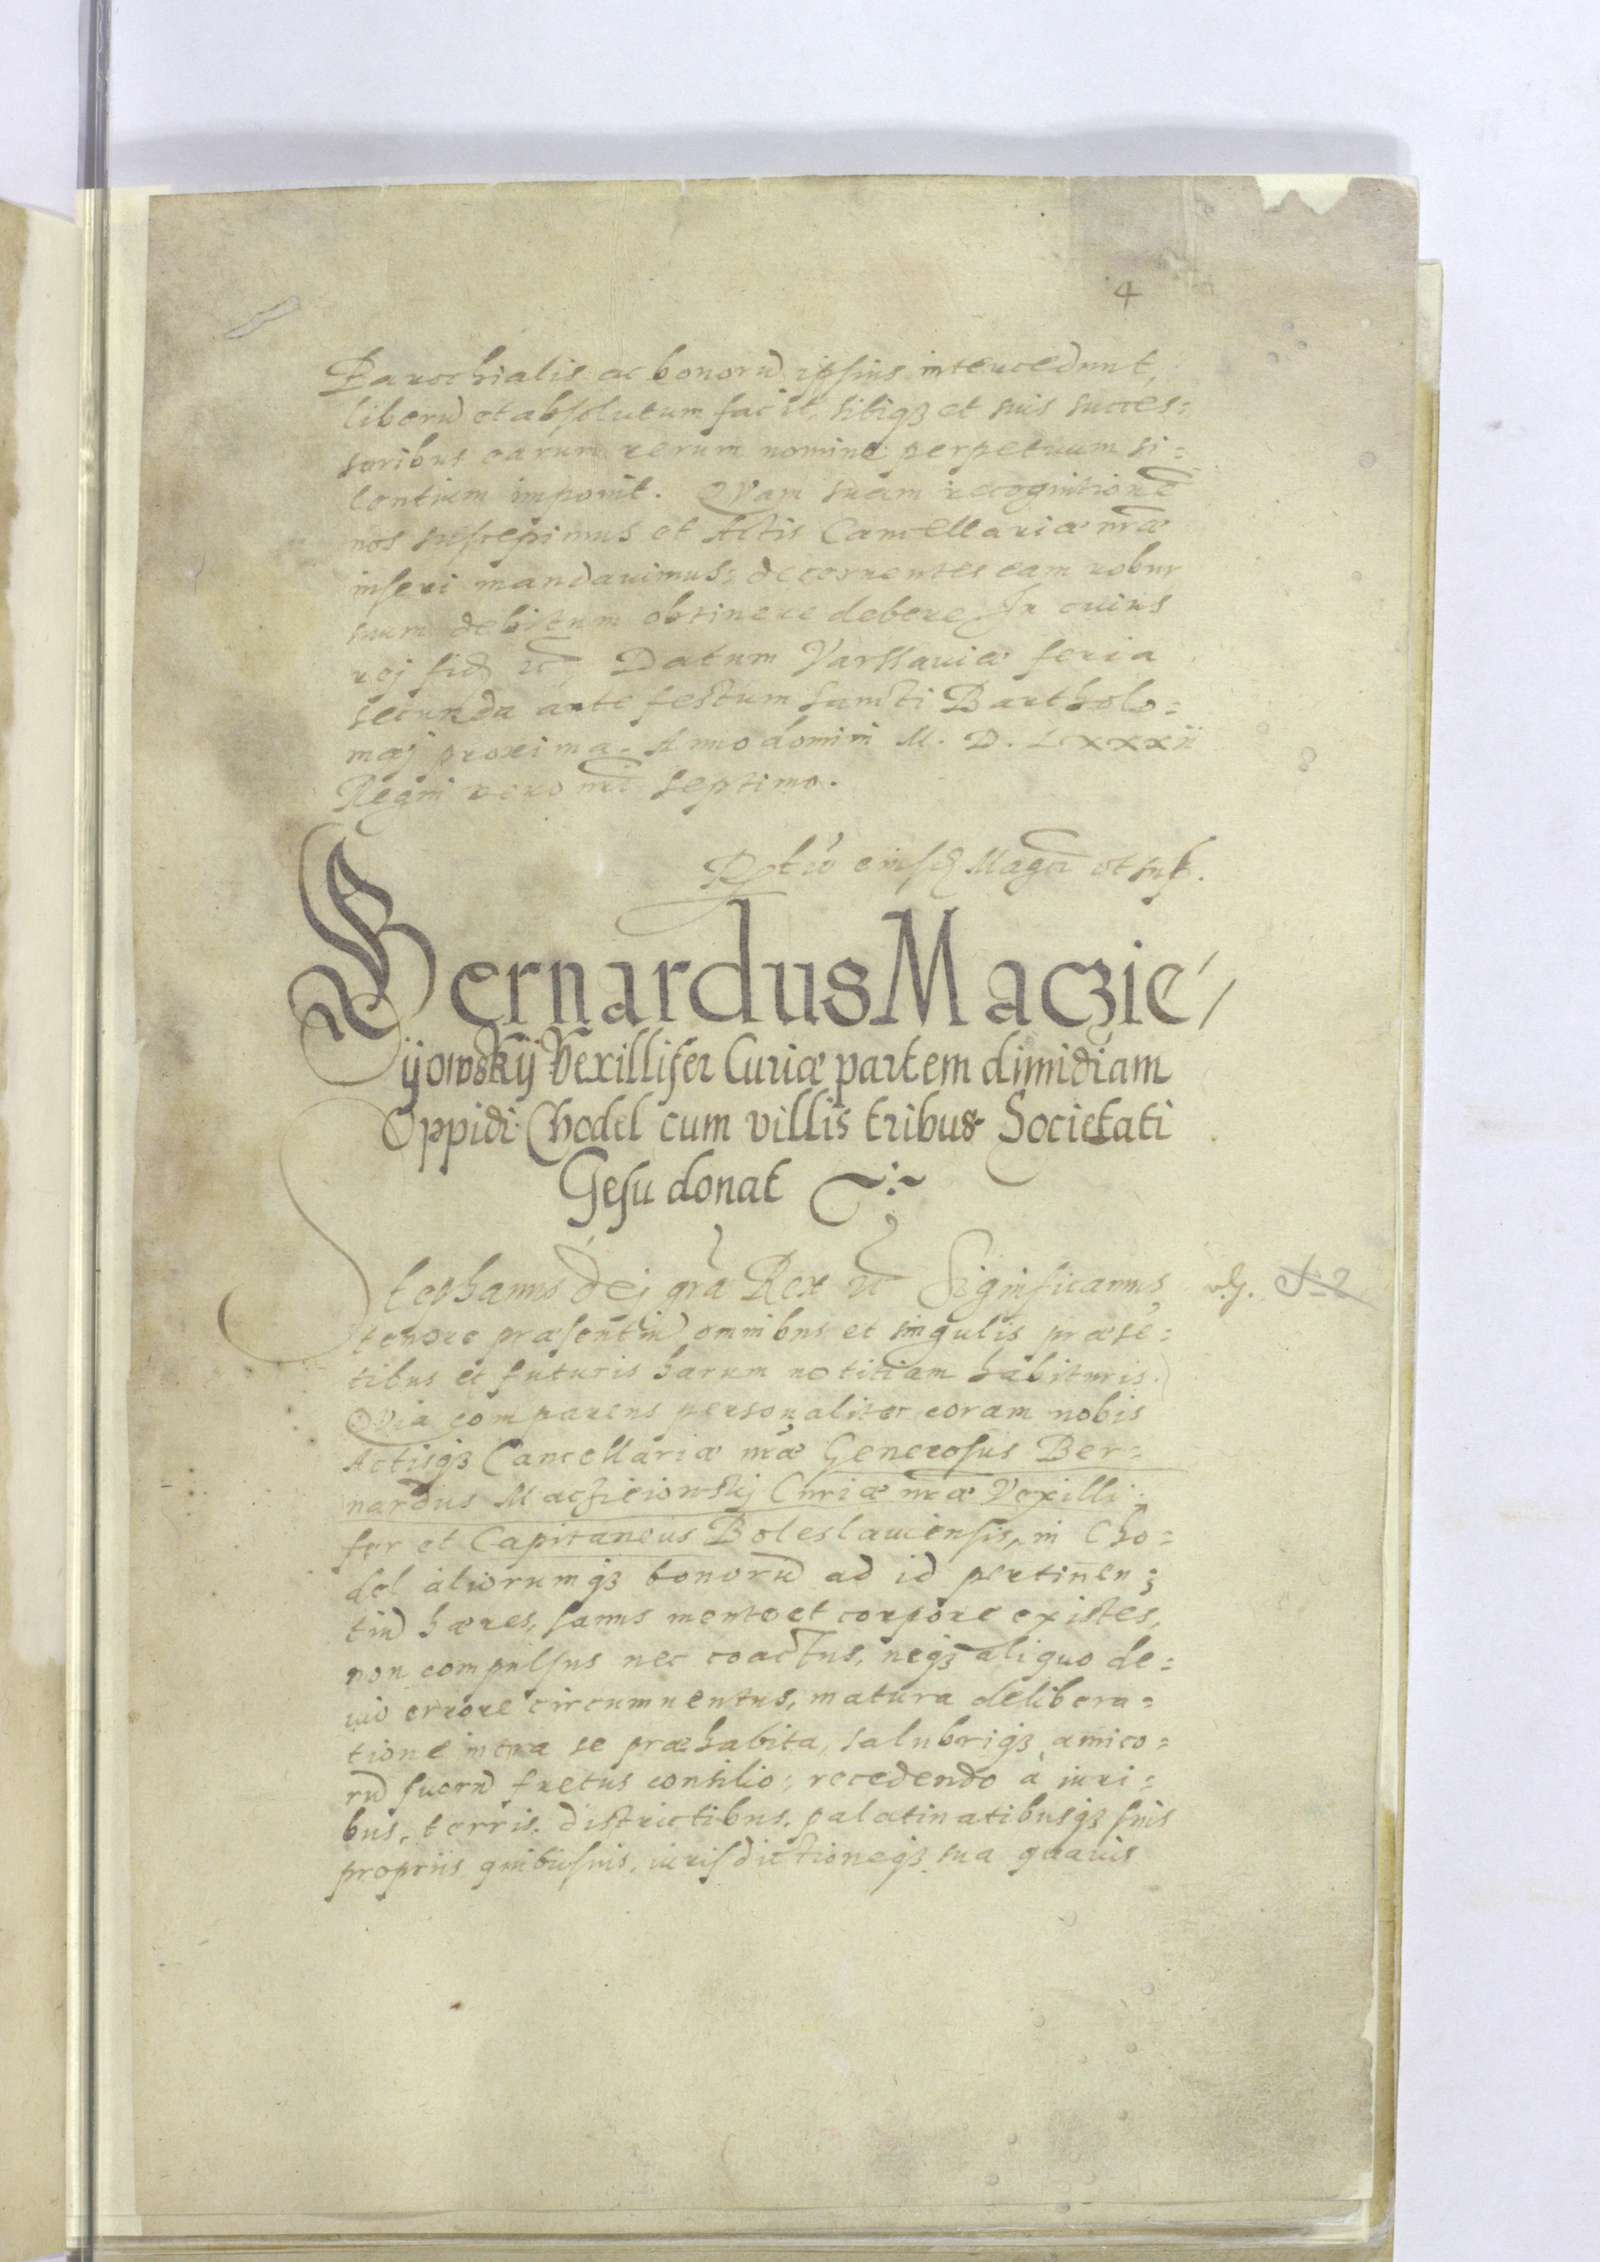 4
Parochialis ac bonorũ ipsius intercedunt,
liberũ et absolutum facit, sibiqȝ et suis succes=
soribus earum rerum nomine perpetuum si=
lentium imponit. Quam suam recognitionẽ
nos suscepimus et Actis Cancellariæ nr̃æ
inseri mandauimus, decernentes eam robur
suum debitum obtinere debere. In cuius
rej fid̃ ec̃, Datum Varssauiæ feria
secunda ante festum Sancti Bartholo=
mæj proxima. Anno domini M. D. LXXXii
Regni vero nr̃i septimo.
R̃tio eiusd̃ Mag̃ci et sup̃.
Bernardus Maczie/
ÿowskÿ Vexillifer Curiæ partem dimidiam
Oppidi Chodel cum villis tribus Societati
Gesu donat
Stephanus dej gr̃a Rex ec̃ Significamus
tenore præsentiũ omnibus et singulis præsẽ=
tibus et futuris harum notitiam habituris.
Quia comparens personaliter coram nobis
Actisqȝ Cancellariæ nr̃æ Generosus Ber=
nardus Maczieiowskij Curiæ nr̃æ Vexilli
fer et Capitaneus Boleslauiensis, in Cho=
del aliorumqȝ bonorũ ad id pertinen=
tiũ hæres, sanus mente et corpore existẽs,
non compulsus nec coactus, neqȝ aliquo de=
uio errore circumuentus, matura delibera=
tione intra se præhabita, salubriqȝ amico=
rũ suorũ fretus consilio; recedendo à iuri=
bus, terris, districtibus, palatinatibusqȝ suis
propriis quibusuis, iurisdictioneqȝ sua quauis